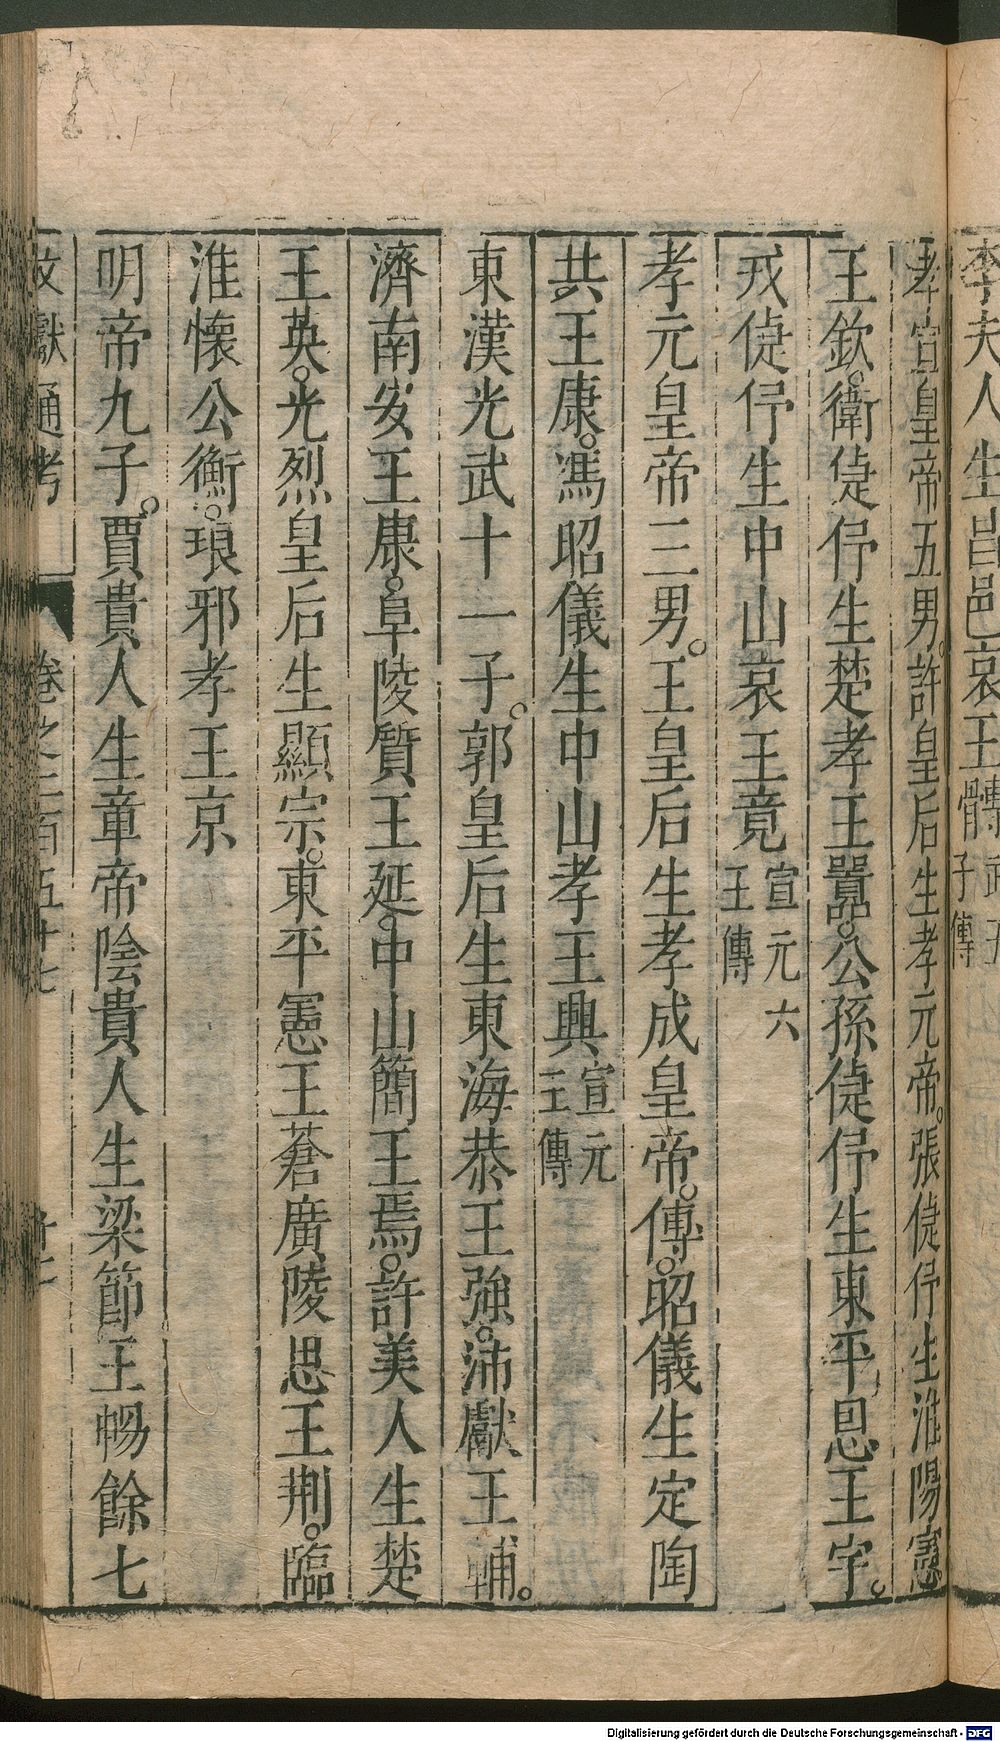 李夫人生昌邑哀王髆武五子傳
孝宣皇帝五男。許皇后生孝元帝。張倢伃生淮陽憲
王欽。衛倢伃生楚孝王囂。公孫倢伃生東平思王宇。
戎倢伃生中山哀王竟宣元六王傳
孝元皇帝三男。王皇后生孝成皇帝。傅。昭儀生定陶
共王康。馮昭儀生中山孝王興宣元王傳
東漢光武十一子。郭皇后生東海恭王強。沛獻王輔。
濟南安王康。阜陵質王延。中山簡王焉。許美人生楚
王英。光烈皇后生顯宗。東平憲王蒼廣陵思王荆。臨
淮懷公衡。琅邪孝王京
明帝九子。賈貴人生章帝陰貴人生梁節王暢餘七
文獻通考 卷之二百五十七
Digitalisierung gefördert durch die Deutsche Forschungsgemeinschaft - DFG